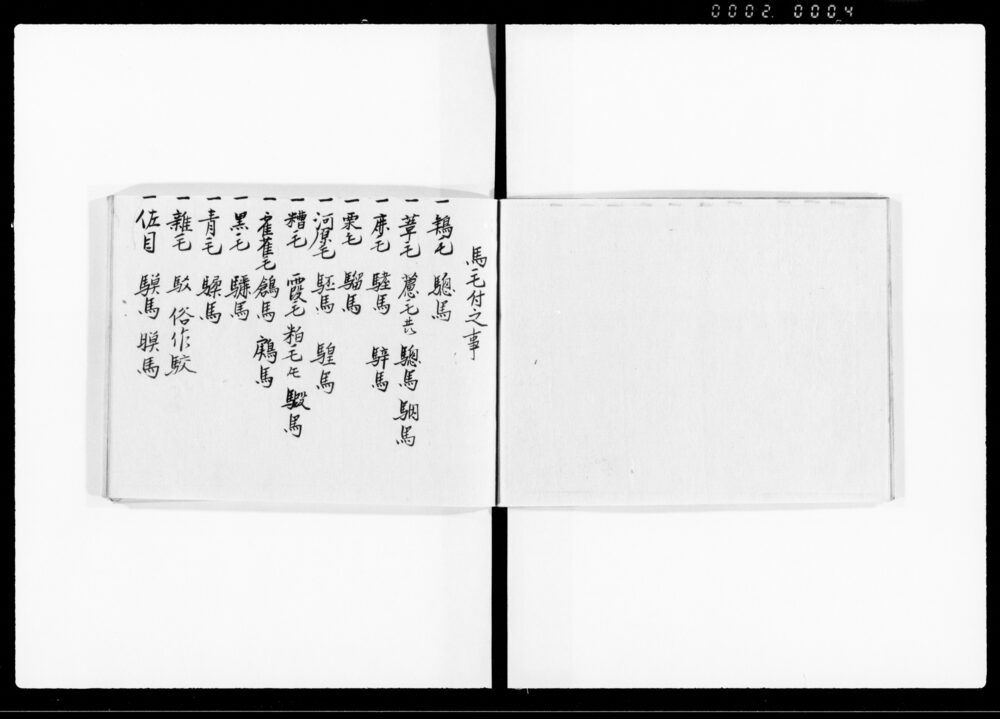 0002 0004
馬毛付之事
一 鵇毛 騘馬
一 葦毛 葱毛共 驄馬 駰馬
一 鹿毛 騜馬 騂馬
一 栗毛 騮馬
一 河原毛 駓馬 騜馬
一 糟毛 霞毛 粕毛 毛 馬
一 雀毛 鴿馬 鴈馬
一 黒毛 驪馬
一 青毛 馬
一 雜毛 駁 俗作駮
一 佐目 馬 馬